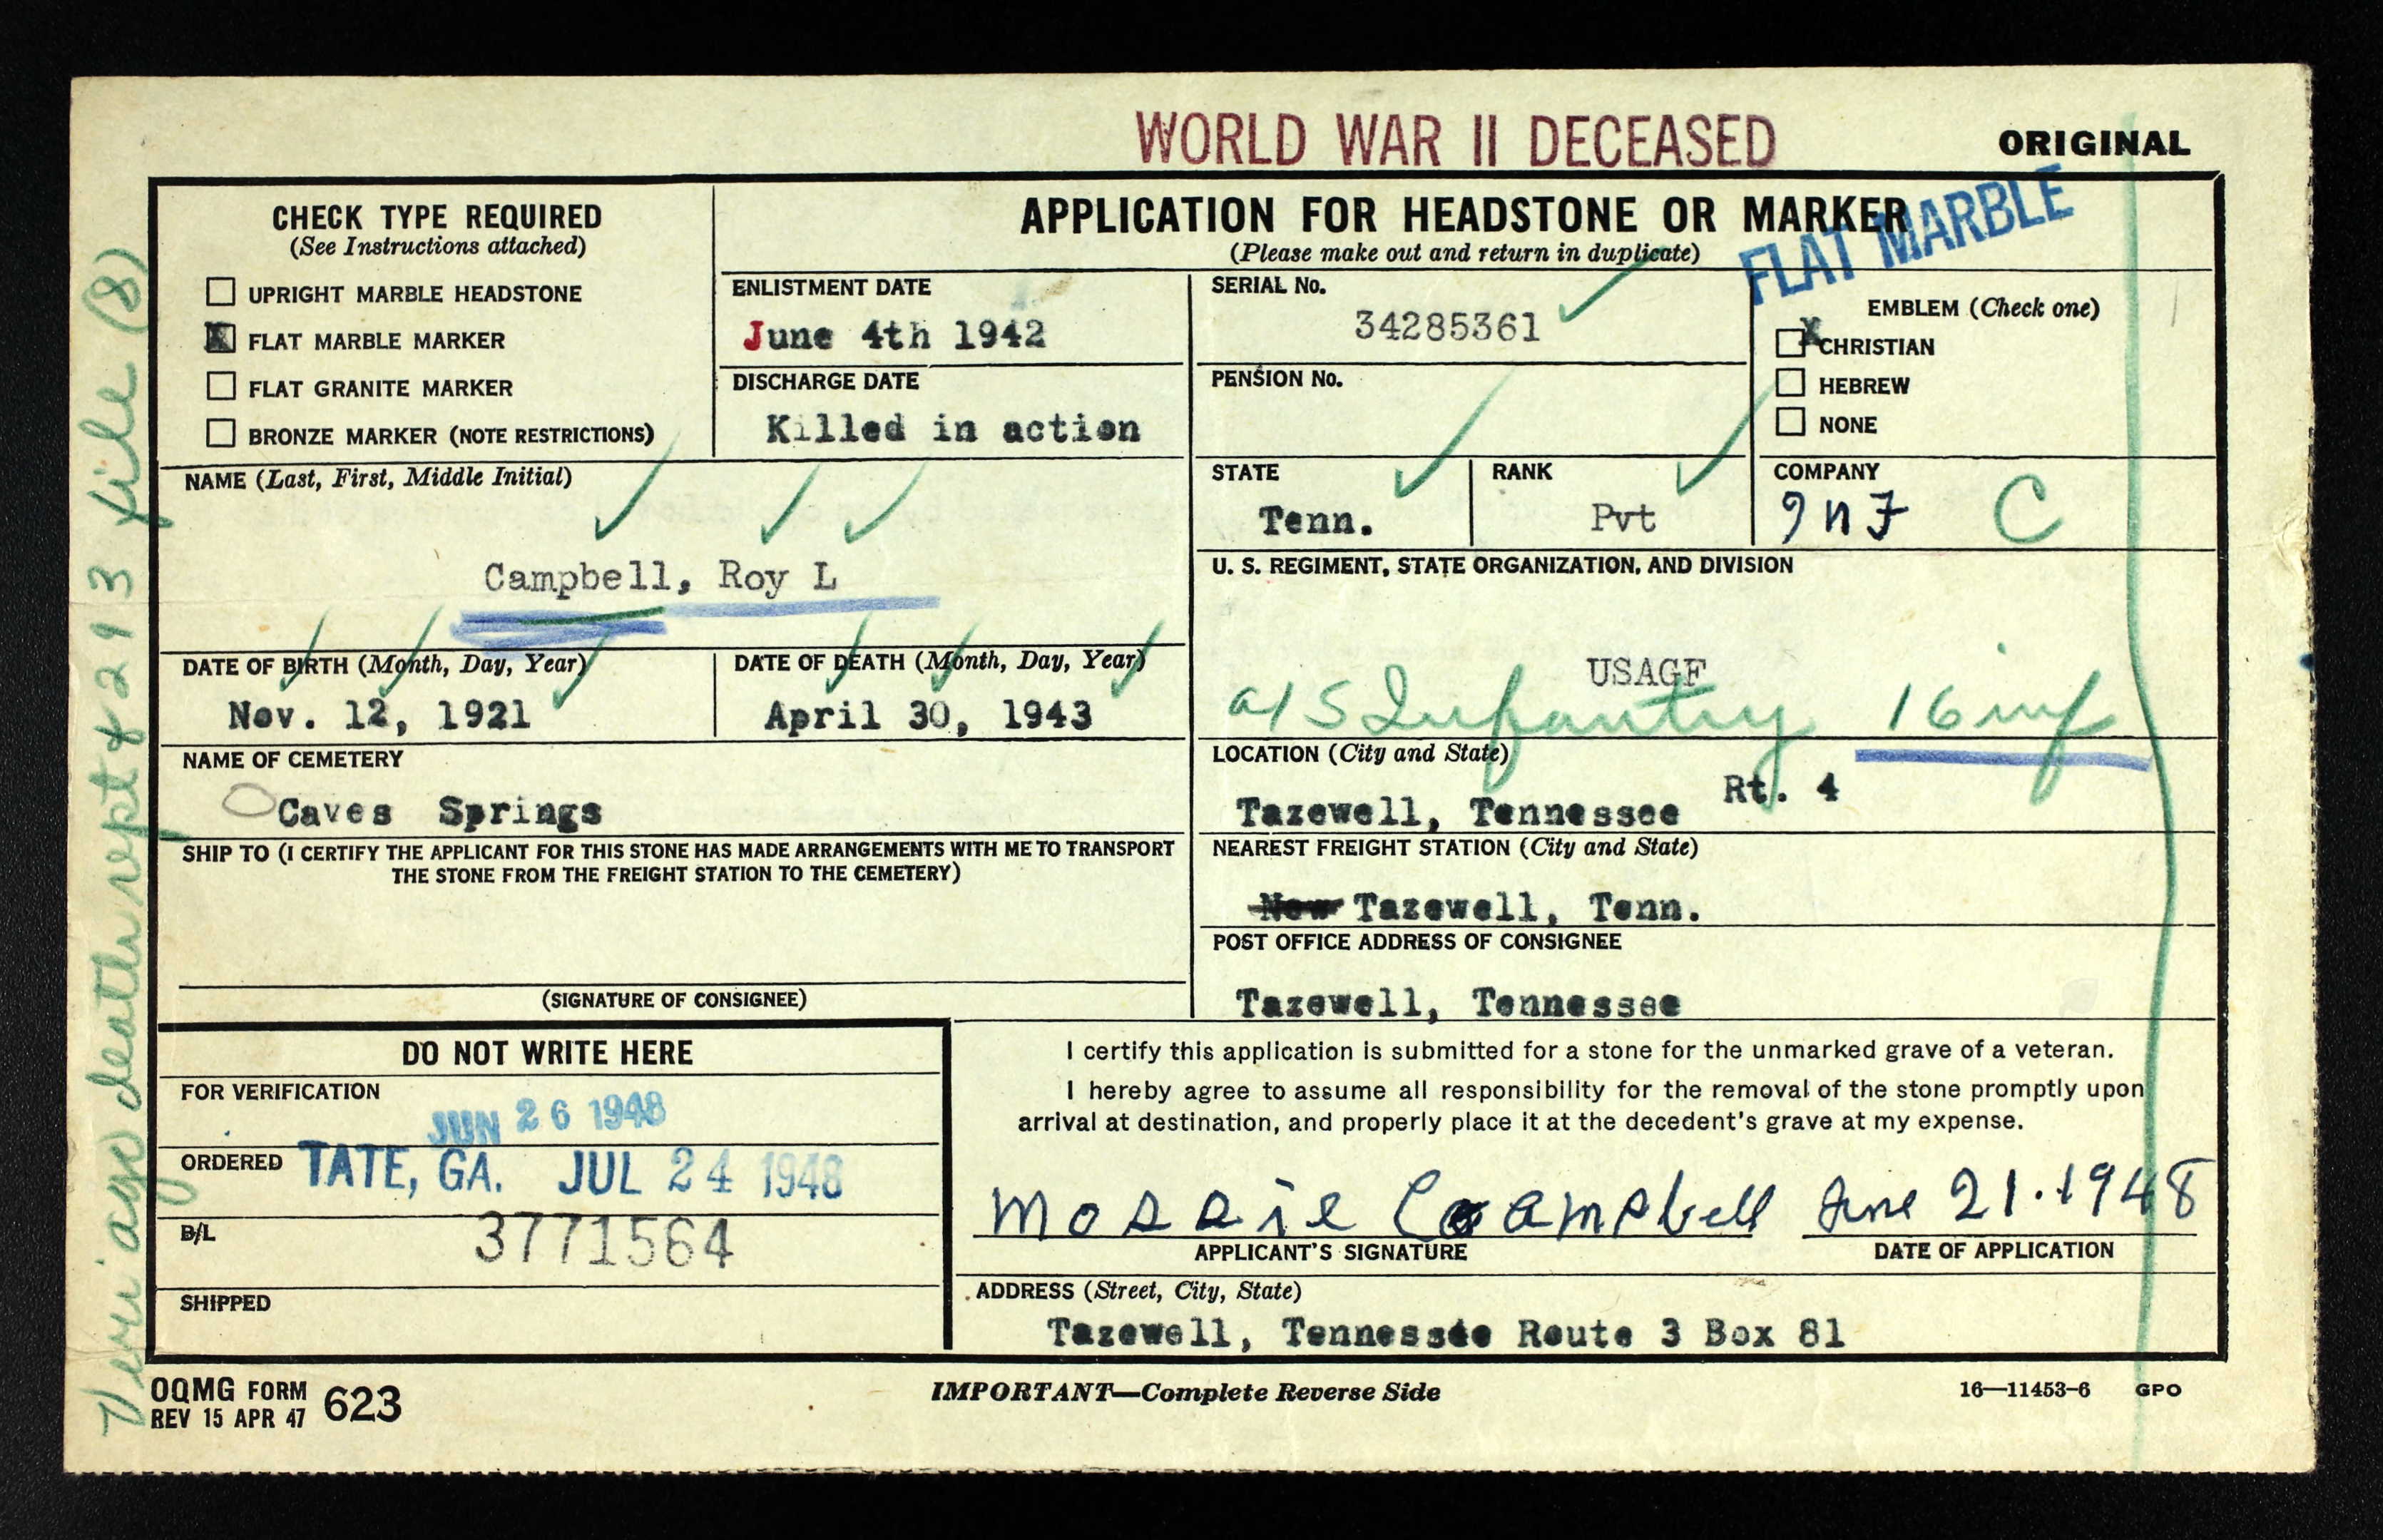 WORLD WAR II DECEASED
ORIGINAL
CHECK TYPE REQUIRED
(See Instructions attached)
UPRIGHT MARBLE HEADSTONE
X FLAT MARBLE MARKER
FLAT GRANITE MARKER
BRONZE MARKER (NOTE RESTRICTIONS)
APPLICATION FOR HEADSTONE OR MARKER
(Please make out and return in duplicate)
FLAT MARBLE
ENLISTMENT DATE
June 4th 1942
DISCHARGE DATE
Killed in action
SERIAL No.
34285361
PENSION No.
EMBLEM (Check one)
X CHRISTIAN
HEBREW
NONE
NAME (Last, First, Middle Initial)
Campbell, Roy L
STATE
Tenn.
RANK
Pvt
COMPANY
INF C
U. S. REGIMENT, STATE ORGANIZATION, AND DIVISION
USAGF
Infantry 16 inf
DATE OF BIRTH (Month, Day, Year)
Nov. 12, 1921
DATE OF DEATH (Month, Day, Year)
April 30, 1943
NAME OF CEMETERY
Caves Springs
LOCATION (City and State)
Tazewell, Tennessee Rt. 4
SHIP TO (I CERTIFY THE APPLICANT FOR THIS STONE HAS MADE ARRANGEMENTS WITH ME TO TRANSPORT
THE STONE FROM THE FREIGHT STATION TO THE CEMETERY)
(SIGNATURE OF CONSIGNEE)
NEAREST FREIGHT STATION (City and State)
New Tazewell, Tenn.
POST OFFICE ADDRESS OF CONSIGNEE
Tazewell, Tennessee
DO NOT WRITE HERE
FOR VERIFICATION
JUN 26 1948
ORDERED TATE, GA. JUL 24 1948
B/L 3771564
SHIPPED
I certify this application is submitted for a stone for the unmarked grave of a veteran.
I hereby agree to assume all responsibility for the removal of the stone promptly upon
arrival at destination, and properly place it at the decedent's grave at my expense.
Mossie Campbell June 21. 1948
APPLICANT'S SIGNATURE
DATE OF APPLICATION
ADDRESS (Street, City, State)
Tazewell, Tennessee Route 3 Box 81
OQMG FORM 623
REV 15 APR 47
IMPORTANT—Complete Reverse Side
16—11453-6 GPO
Veri ago death rept & 293 file (8)